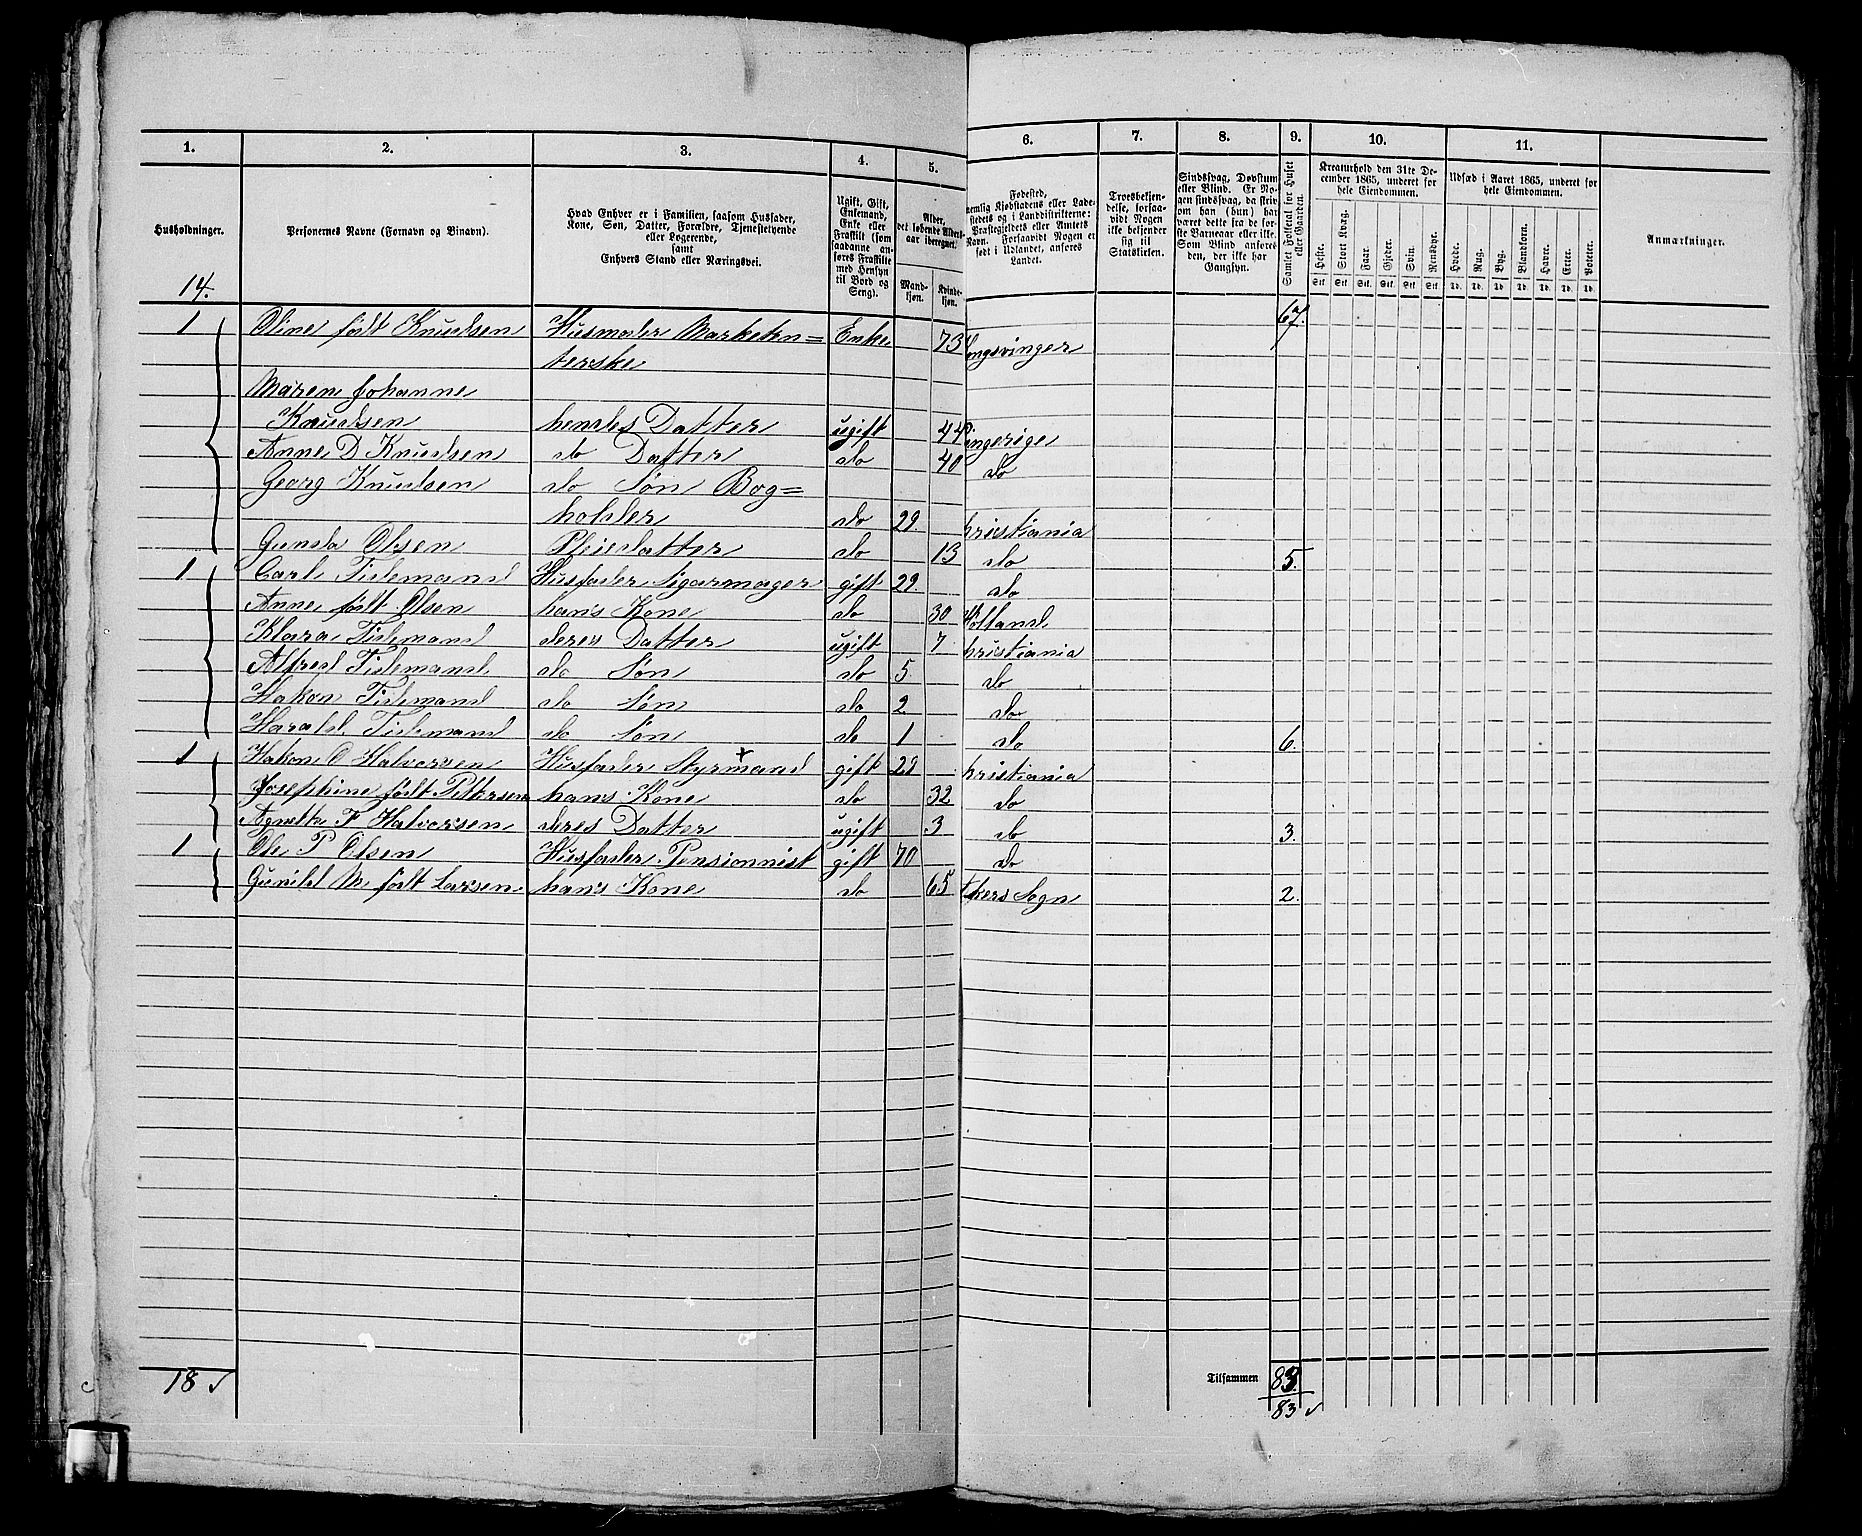 1. 2. 3. 4. 5. 6. 7. 8. 9. 10. 11.
Husholdninger.
Personernes Navne (Fornavn og Tilnavn).
Hvad Enhver er i Familien, saasom Husfader,
Kone, Søn, Datter, Forældre, Tjenestetyende
eller Logerende,
samt
Enhvers Stand eller Næringsvei.
Ugift, Gift,
Enkemand,
Enke eller
Fraskilt (som
saadanne an-
føres Fraskilte
med Hensyn
til Bord og
Seng).
Alder,
det løbende Alders-
aar iberegnet.
Mand-
kjøn.
Kvinde-
kjøn.
Fødested,
nemlig Kjøbstadens eller Lade-
stedets og i Landdistrikterne:
Præstegjeldets eller Amtets
Navn. Forsaavidt Nogen er
født i Udlandet, anføres
Landet.
Troesbekjen-
delse, forsaa-
vidt Nogen
ikke bekjender
sig til
Statskirken.
Sindssvag, Døvstum
eller Blind. Er No-
gen sindssvag, da skriv
om han (hun) har
været dette fra de for-
ste Barneaar eller ikke.
Som Blind anføres
den, der ikke har
Gangsyn.
Samlet Folketal for Huset
eller Gaarden.
Kreaturhold den 31te De-
cember 1865, underet for
hele Eiendommen.
Heste. Stort Kvæg. Faar. Gjeder. Svin. Rensdyr.
Stk. Stk. Stk. Stk. Stk. Stk.
Udsæd i Aaret 1865, underet for
hele Eiendommen.
Hvede. Rug. Byg. Blandkorn. Havre. Erter. Poteter.
Td. Td. Td. Td. Td. Td. Td.
Anmærkninger.
14.
67.
1 Oline født Knudsen Husmoder Marketen= Enke 73 ongsvinger
terske
Maren Johanne
Knudsen hendes Datter ugift 44 ingerige
Anne D Knudsen do Datter do 40 do
Georg Knudsen do Søn Bog=
holder do 29. hristiania
Gunda Olsen Pleiedatter do 13 do 5.
1 Carl Tidemand Husfader Sigarmager gift 29. do
Anne født Olsen hans Kone do 30 Holland
Klara Tidemand deres Datter ugift 7 hristiania
Alfred Tidemand do Søn do 5. do
Hakon Tidemand do Søn do 2 do
Harald Tidemand do Søn do 1 do 6.
1 Hakon O Halvorsen Husfader Styrmand gift 29 hristiania
Josephine født Pettersen hans Kone do 32 do
Agnette F Halvorsen deres Datter ugift 3 do 3.
1 Ole P Olsen Husfader Pensionnist gift 70 do
Gunild M født Larsen hans Kone do 65 kers Sogn 2.
18 ✓
Tilsammen 83
83 ✓